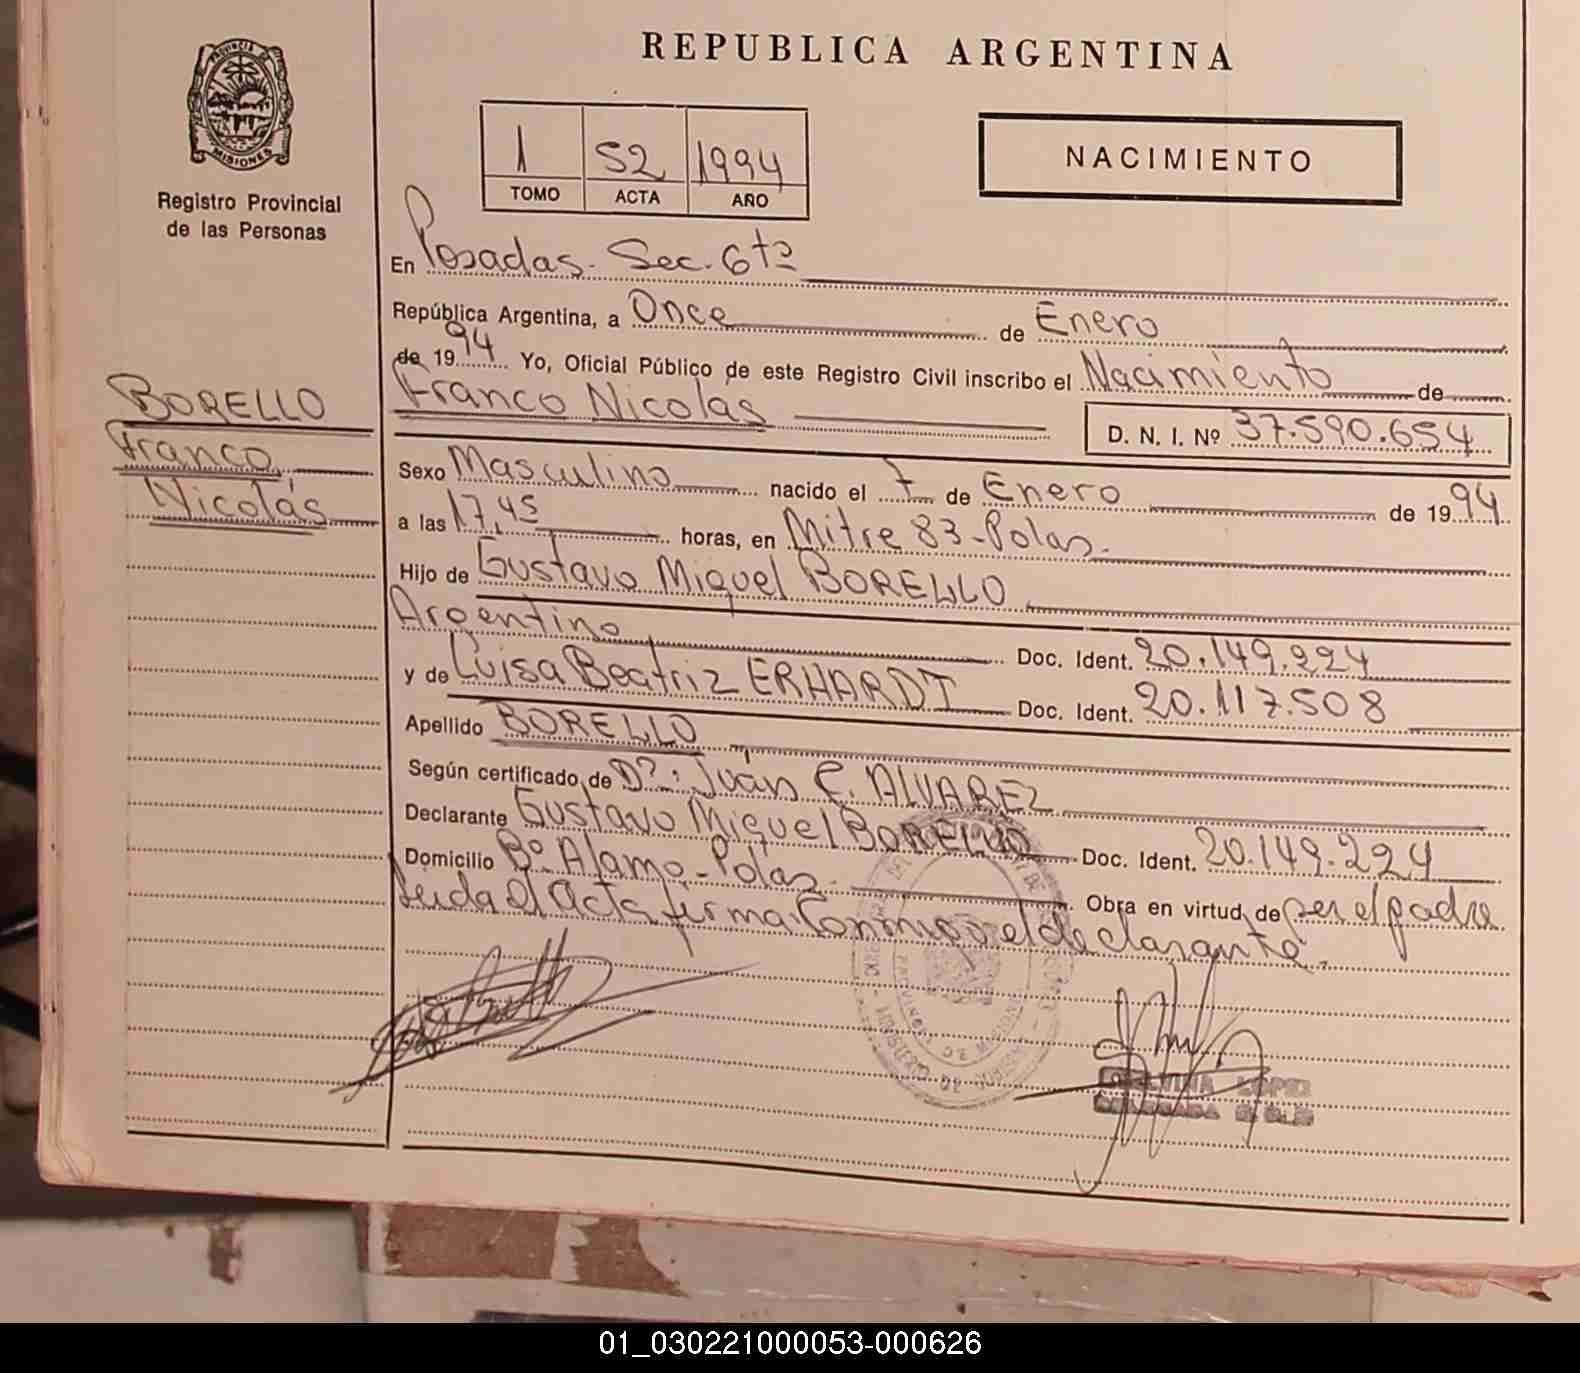 REPUBLICA ARGENTINA
PROVINCIA DE
MISIONES
Registro Provincial
de las Personas
1 52 1994
TOMO ACTA AÑO
NACIMIENTO
En Posadas - Sec. 6ta
República Argentina, a Once de Enero
de 1994 Yo, Oficial Público de este Registro Civil inscribo el Nacimiento de
Franco Nicolás D. N. I. Nº 37.590.654
BORELLO
Franco
Nicolás
Sexo Masculino nacido el 7 de Enero de 1994
a las 17,45 horas, en Mitre 83 - Polas.
Hijo de Gustavo Miguel BORELLO
Argentino Doc. Ident. 20.149.224
y de Luisa Beatriz ERHARDT Doc. Ident. 20.117.508
Apellido BORELLO
Según certificado de Dr: Juan C. ALVAREZ
Declarante Gustavo Miguel BORELLO Doc. Ident. 20.149.224
Domicilio Bº Alamo - Polas. Obra en virtud de ser el padre
Leida el Acta firma Conmigo el declarante.
LOPEZ
01_030221000053-000626